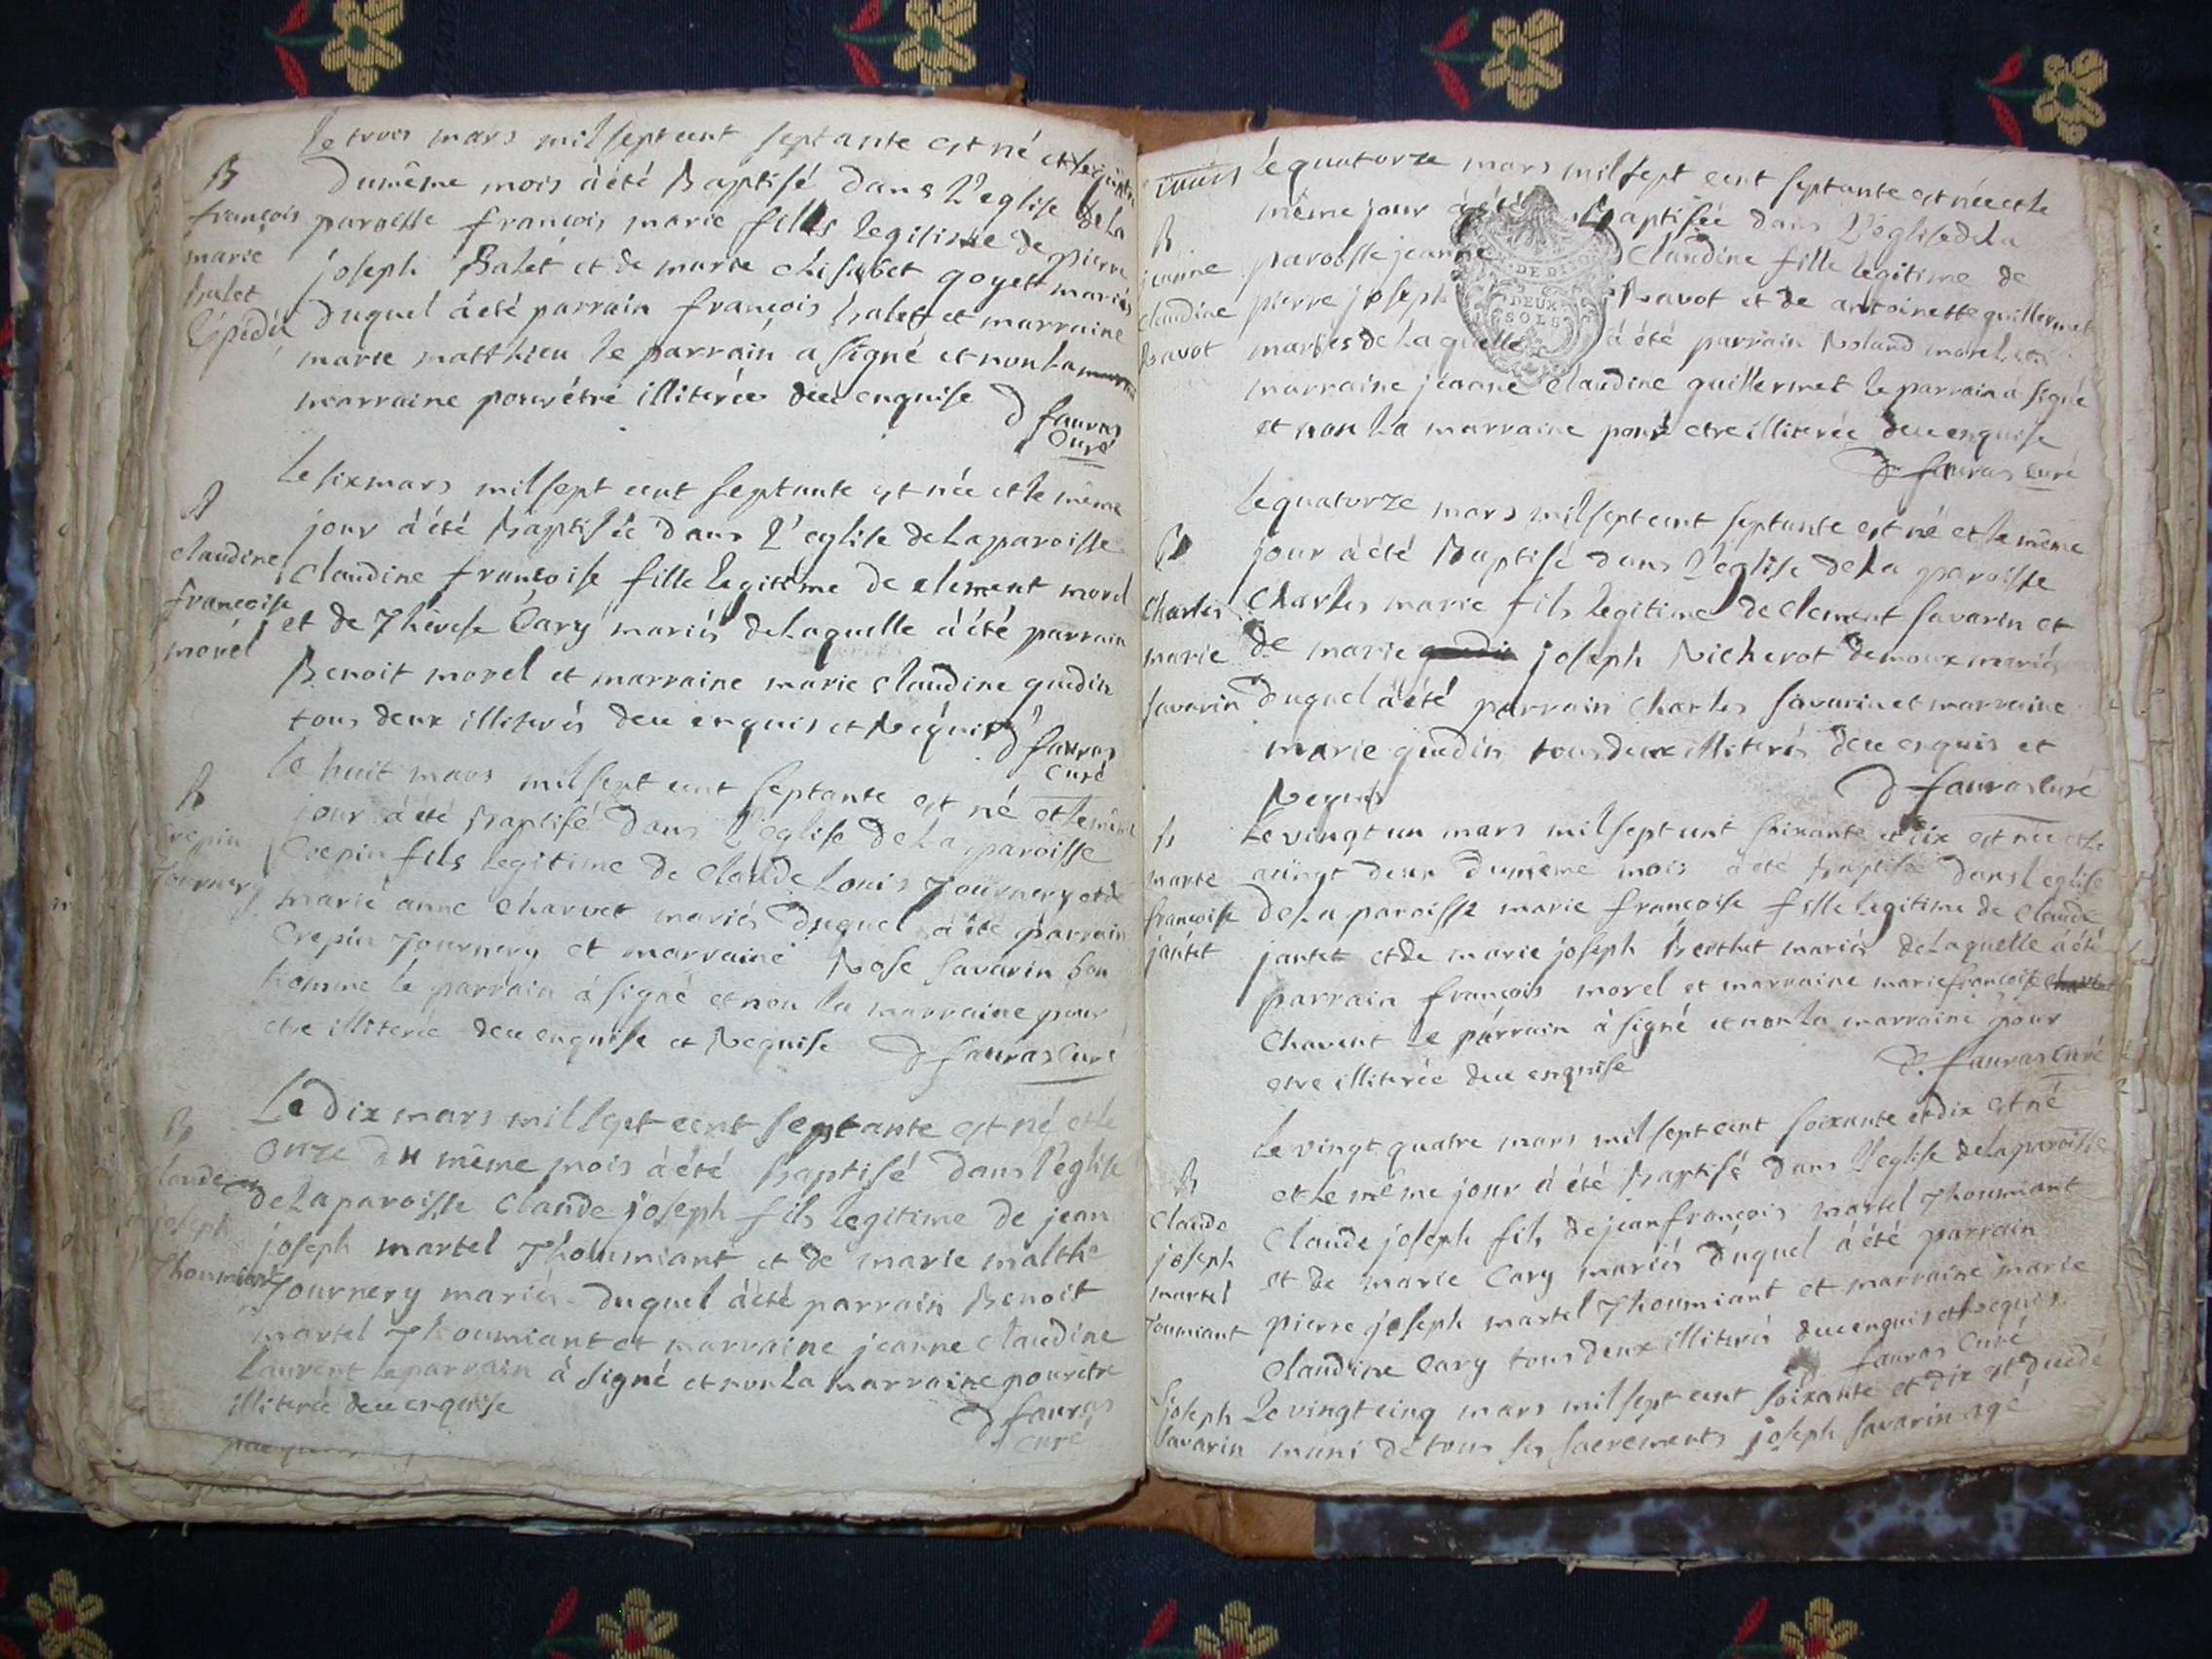 le trois mars mil sept cent septante est né et le quatre
B
du même mois à été Baptisé dans l'eglise de la
françois
paroisse françois marie fils legitime de pierre
marie
joseph Balet et de marie elisabet goyet mariés
balet
duquel à été parrain françois balet et marraine
marie matthieu le parrain a signé et non la
marraine pour étre illiterée deüe enquise D fauras
Curé
le six mars mil sept cent septante est née et le même
B
jour à été Baptisée dans l'eglise de la paroisse
claudine
claudine françoise fille legitime de clement morel
françoise
et de Therese Cary mariés de laquelle à été parrain
morel
Benoit morel et marraine marie claudine guedin
tous deux illiterés deue enquis et Requis D fauras
curé
le huit mars mil sept cent septante est né et le même
B
jour à été Baptisé dans l'eglise de la paroisse
Crepin
Crepin fils legitime de claude Louis Journery et de
Journery
marie anne Charvet mariés duquel à été parrain
Crepin Journery et marraine Rose Savarin bon
homme le parrain à signé et non la marraine pour
etre illiterée deue enquise et Requise D fauras Curé
Le dix mars mil sept cent septante est né et le
B
onze du même mois à été Baptisé dans l'église
claude
de la paroisse Claude joseph fils legitime de jean
joseph
joseph martel Thoumiant et de marie malthe
Thoumiant
Journery mariés duquel à été parrain Benoit
martel Thoumiant et marraine jeanne claudine
Laurent le parrain à signé et non la marraine pour etre
illiterée deue enquise D fauras
curé
le quatorze mars mil sept cent septante est née et le
même jour à été Baptisée dans l'église de la
B
jeanne
paroisse jeanne Claudine fille legitime de
DE DIJON
DEUX
SOLS
claudine
pierre joseph Ravot et de antoinette guillermet
Ravot
mariés de laquelle à été parrain Roland morel et
marraine jeanne claudine guillermet le parrain à signé
et non la marraine pour etre illiterée deue enquise
D fauras curé
le quatorze mars mil sept cent septante est né et le même
B
jour à été Baptisé dans l'église de la paroisse
Charles
Charles marie fils legitime de clement Savarin et
marie
de marie joseph Richerot demoux mariés
savarin
duquel à été parrain Charles Savarin et marraine
marie guedin tous deux illiterés deue enquis et
Requis D fauras curé
B
Le vingt un mars mil sept cent soixante et dix est née et le
marie
vingt deux du même mois à été Baptisée dans l'eglise
françoise
de la paroisse marie françoise fille legitime de claude
jantet
jantet et de marie joseph Berthet mariés de laquelle à été
parrain françois morel et marraine marie françoise
Chavent le parrain à signé et non la marraine pour
etre illiterée deue enquise D. fauras curé
Le vingt quatre mars mil sept cent soixante et dix est né
B
et le même jour à été Baptisé dans l'eglise de la paroisse
Claude
Claude joseph fils de jean françois martel Thoumiant
joseph
et de marie Cary mariés duquel à été parrain
martel
pierre joseph martel Thoumiant et marraine marie
Toumiant
Claudine Cary tous deux illiterés deue enquis et Requis
D fauras Curé
joseph
Le vingt cinq mars mil sept cent soixante et dix est decedé
savarin
muni de tous ses sacrements joseph savarin agé